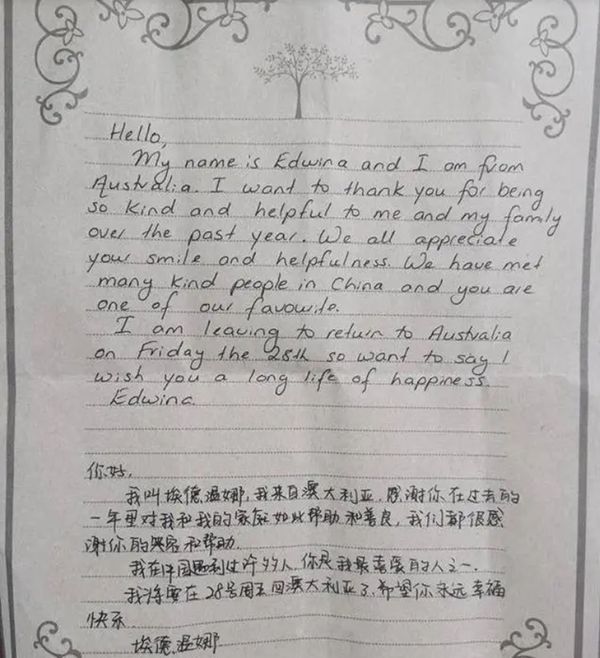 Hello,
My name is Edwina and I am from
Australia. I want to thank you for being
so kind and helpful to me and my family
over the past year. We all appreciate
your smile and helpfulness. We have met
many kind people in China and you are
one of our favourite.
I am leaving to return to Australia
on Friday the 28th so want to say I
wish you a long life of happiness.
Edwina
你好,
我叫埃德温娜,我来自澳大利亚,感谢你在过去的
一年里对我和我的家庭如此帮助和善良,我们都很感
谢你的笑容和帮助.
我在中国遇到过许多人,你是我最喜爱的人之一.
我将要在28号周五回澳大利亚了,希望你永远幸福
快乐
埃德温娜